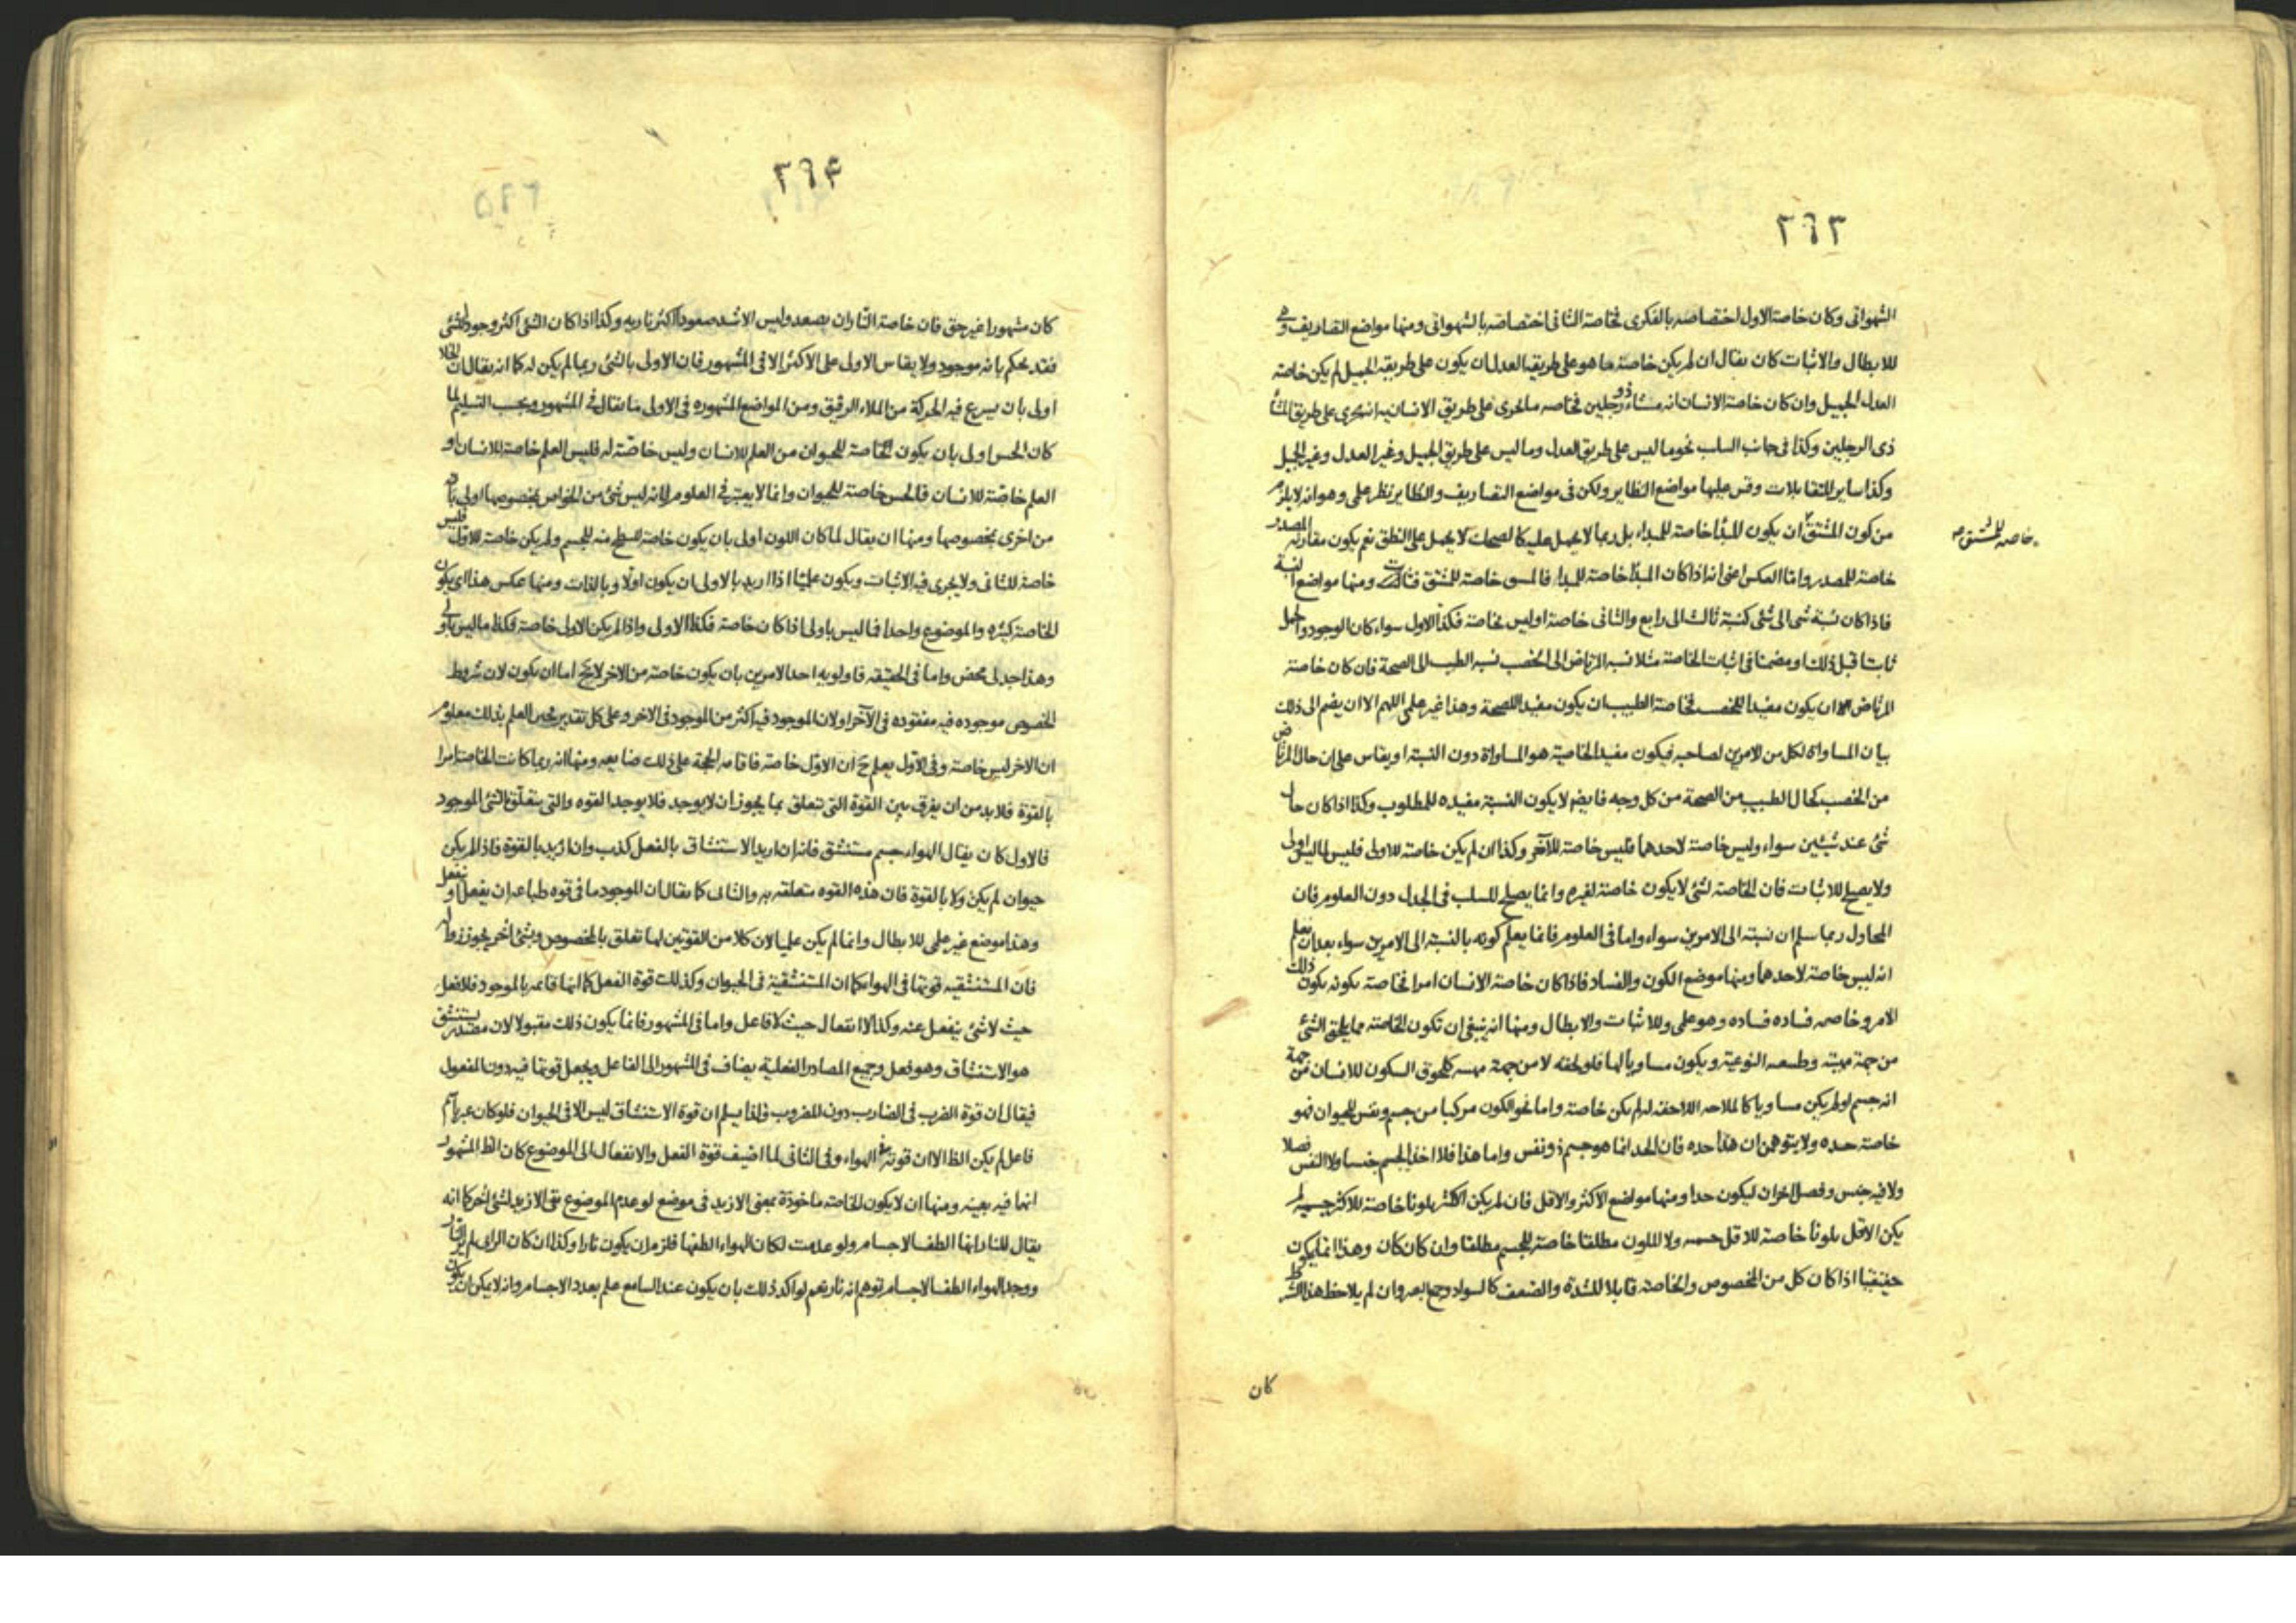 ٢٦٣
الشهوانى وكان خاصة الاول اختصاصه بالفكرى فخاصة الثانى اختصاصه بالشهوانى ومنها مواضع التصاريف وهى
للابطال والاثبات كان يقال ان لم يكن خاصة ما هو على طريقة العدل ان يكون على طريقة الجميل لم يكن خاصة
العدل الجميل وان كان خاصة الانسان انه مشاء ذو رجلين فخاصه ما يجرى على طريق الانسانيه انه يجرى على طريق المشاء
ذى الرجلين وكذا فى جانب السلب نحو ما ليس على طريق العدل وما ليس على طريق الجميل وغير العدل وغير الجميل
وكذا ساير المتقابلات وقس عليها مواضع النظاير ولكن فى مواضع التصاريف والنظاير نظر على وهو انه لا يلزم
من كون المشتق ان يكون المبدأ خاصة للمبداء بل ربما لا يحمل عليه كالضحك لا يحمل على النطق نعم يكون مقارنه المصدر
خاصه للمشتق
خاصة للمصدر واما العكس اعنى انه اذا كان المبدأ خاصة للمبدا فالمشتق خاصة للمشتق فثابت ومنها مواضع النسبة
فاذا كان نسبة شى الى شئ كنسبة ثالث الى رابع والثانى خاصة اوليس بخاصة فكذا الاول سواء كان الوجود والحمل
ثابتا قبل ذلك او مضمنا فى اثبات الخاصة مثلا نسبه المرتاض الى الخصب نسبه الطبيب الى الصحة فان كان خاصة
المرتاض الا ان يكون مفيدا للخصب فخاصة الطبيب ان يكون مفيد الصحة وهذا غير علمى اللهم الا ان يضم الى ذلك
بيان المساواة لكل من الامرين لصاحبه فيكون مفيد الخاصية هو المساواة دون النسبة او يقاس على ان حال المرتاض
من الخصب كحال الطبيب من الصحة من كل وجه فايضم لا يكون النسبة مفيده للمطلوب وكذا اذا كان حال
شئ عند شيئين سواء وليس خاصة لاحدهما فليس خاصة للآخر وكذا ان لم يكن خاصة للاولى فليس لما ليس اولى
ولا يصلح للاثبات فان الخاصة لشئ لا يكون خاصة لغيره وانما يصلح للسلب فى الجدل دون العلوم فان
المجادل ربما سلم ان نسبته الى الامرين سواء واما فى العلوم فانما يعلم كونه بالنسبة الى الامرين سواء بعد ان يعلم
انه ليس خاصة لاحدهما ومنها موضع الكون والفساد فاذا كان خاصة الانسان امرا فخاصة بكونه بكون ذلك
الامر وخاصه فساده فساده وهو على وللاثبات والابطال ومنها انه ينبغى ان تكون الخاصة مما يلحق الشئ
من جهة مهيته وطبيعته النوعية ويكون مساويا لها فلو لحقه لا من جهة مهيته كلحوق السكون للانسان من جهة
انه جسم او لم يكن مساويا كالملاحه اللاحقه له لم يكن خاصة واما نحو الكون مركبا من جسم ونفس للحيوان فهو
خاصة حده ولا يتوهمن ان هذا حده فان الحد انما هو جسم ذو نفس واما هذا فلا اخذ الجسم جنسا ولا النفس فصلا
ولا فيه جنس وفصل اخران ليكون حدا ومنها مواضع الاكثر والاقل فان لم يكن الاكثر بلونا خاصة للاكثر جسمية لم
يكن الاقل بلونا خاصة للاقل جسمية ولا اللون مطلقا خاصة للجسم مطلقا وان كان كان وهذا انما يكون
حقيقيا اذا كان كل من المخصوص والخاصة قابلا للشدة والضعف كالسواد وجمع البصر وان لم يلاحظ هذا الشرط
كان
٢٦٤
٢٦٥
كان مشهورا غير حق فان خاصة النار ان يصعد وليس الاشد صعودا اكثر ناريه وكذا اذا كان الشئ اكثر وجود لشئ
فقد يحكم بانه موجود ولا يقاس الاولى على الاكثر الا فى المشهور فان الاولى بالشئ ربما لم يكن له كما انه يقال ان الخلا
اولى بان يسرع فيه الحركة من الملاء الرقيق ومن المواضع المشهوره فى الاولى ما يقال فى المشهور ويجب التسليم لما
كان الحس اولى بان يكون خاصة للحيوان من العلم للانسان وليس خاصة له فليس العلم خاصة للانسان او
العلم خاصة للانسان فالحس خاصة للحيوان وانما لا يعتبر فى العلوم لانه ليس شئ من الخواص بخصوصها اولى بانه
من اخرى بخصوصها ومنها ان يقال لما كان اللون اولى بان يكون خاصة للسطح منه للجسم ولم يكن خاصة للاول فليس
خاصة للثانى ولا يجرى فيه الاثبات ويكون علميا اذا اريد بالاولى ان يكون اولا وبالذات ومنها عكس هذا اى يكون
الخاصة كثيره والموضوع واحدا فما ليس باولى اذا كان خاصة فكذا الاولى واذا لم يكن الاولى خاصة فكذا ما ليس باولى
وهذا جدلى محض واما فى الحقيقه فاولويه احد الامرين بان يكون خاصة من الاخر لا يخ اما ان يكون لان شروط
الخصوص موجوده فيه مفقوده فى الآخر او لان الموجود فيه اكثر من الموجود فى الاخر وعلى كل تقدير يحصل العلم بذلك معلوم
ان الاخر ليس خاصة وفى الاول يعلم ح ان الاول خاصة فاقامه الحجة على ذلك ضايعه ومنها انه ربما كانت الخاصة امرا
بالقوة فلا بد من ان يفرق بين القوة التى تتعلق بما يجوز ان لا يوجد فلا يوجد القوه والتى يتعلق بالشئ الموجود
فالاول كان يقال الهواء جسم مستنشق فانه ان اريد الاستنشاق بالفعل كذب وان اريد بالقوة فاذا لم يكن
حيوان لم يكن ولا بالقوة فان هذه القوه متعلقه به والثانى كما يقال ان الموجود ما فى قوه طباعه ان يفعل او ينفعل
وهذا موضع غير علمى للابطال وانما لم يكن علميا لان كلا من القوتين لها تعلق بالمخصوص وبشئ اخر يجوز زواله
فان المستنشقيه قوتها فى الهواء كما ان المستنشقية فى الحيوان وكذلك قوة الفعل كما انها قايمه بالموجود فلا فعل
حيث لا شئ ينفعل عنه وكذا لا انفعال حيث لا فاعل واما فى المشهور فانما يكون ذلك مقبولا لان مصدر يستنشق
هو الاستنشاق وهو فعل وجميع المصادر الفعلية يضاف فى المشهور الى الفاعل ويجعل قوتها فيه دون المفعول
فيقال ان قوة الضرب فى الضارب دون المضروب فلذا يسلم ان قوة الاستنشاق ليس الا فى الحيوان فلو كان عبر باسم
فاعل لم يكن الظ الا ان قوته فى الهواء وفى الثانى لما اضيف قوة الفعل والانفعال الى الموضوع كان الظ المشهور
انها فيه بعينه ومنها ان لا يكون الخاصة ماخوذة بمعنى الازيد فى موضع لو عدم الموضوع بقى الازيد لشئ اخر كما انه
يقال للنار انها الطف الاجسام ولو عدمت لكان الهواء الطفها فلزم ان يكون نارا وكذا ان كان الراى لم ير النار
ووجد الهواء الطف الاجسام توهم انه نار نعم لو اكد ذلك بان يكون عند السامع علم بعدد الاجسام وانه لا يمكن ان يكون